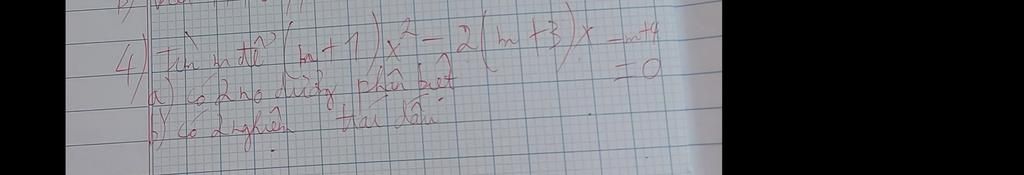 4) Tìm m để (m+1)x² - 2(m+3)x - m+4 = 0
a) có 2 no dương phân biệt
b) có 2 nghiệm trái dấu